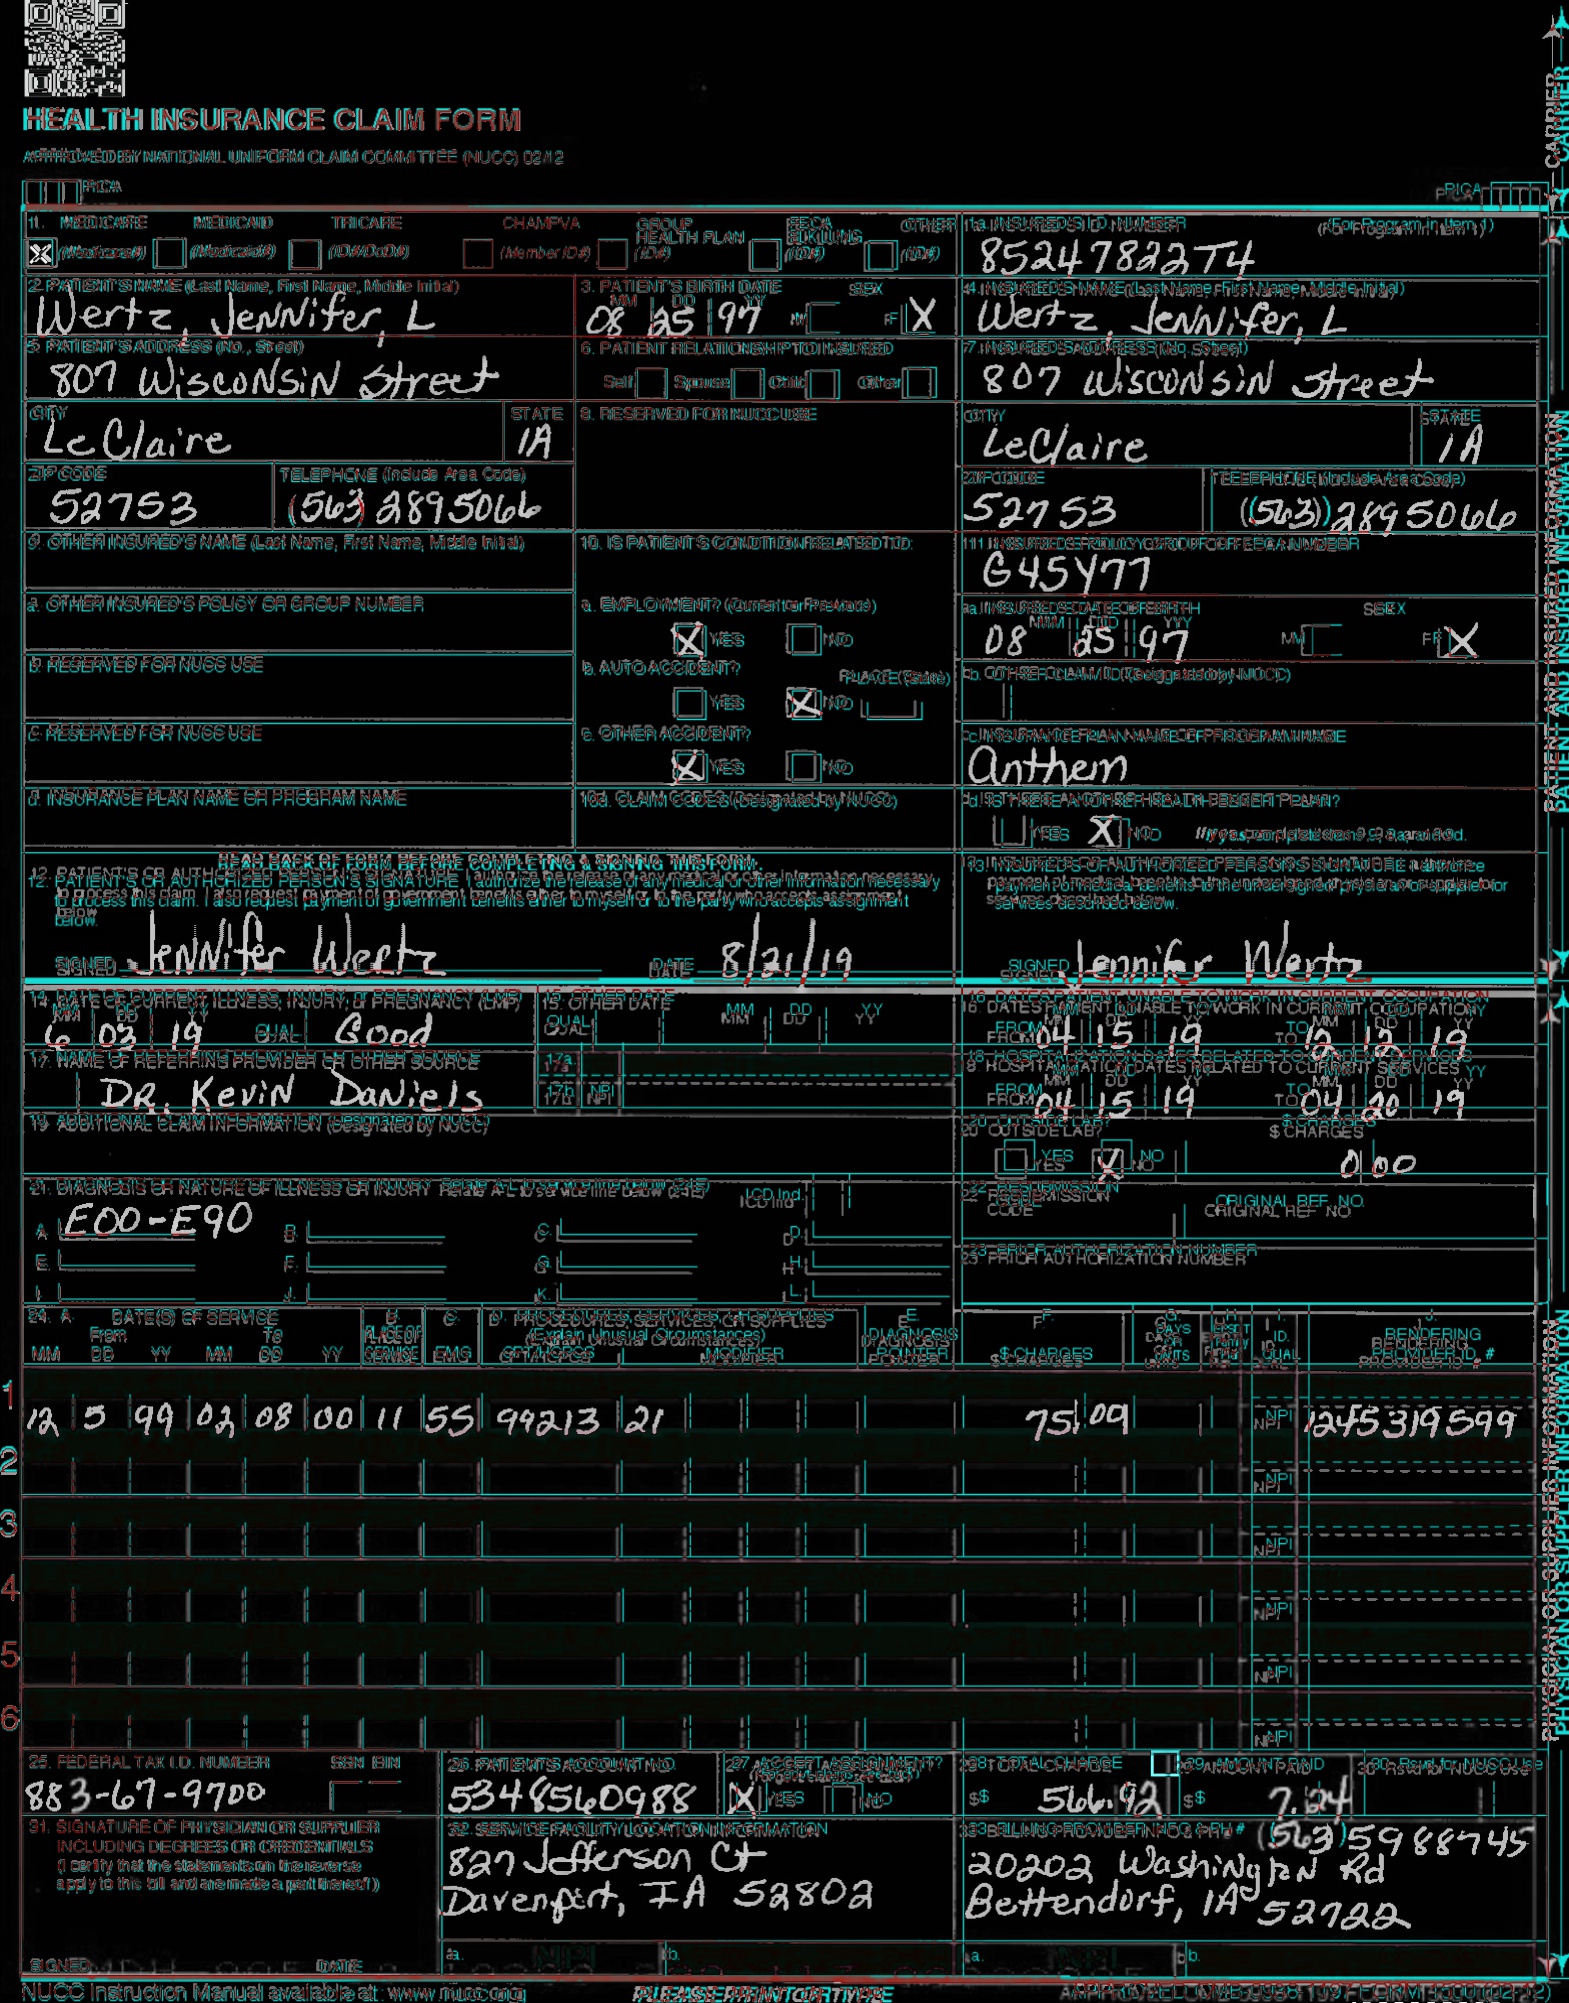 HEALTH INSURANCE CLAIM FORM
APPROVED BY NATIONAL UNIFORM CLAIM COMMITTEE (NUCC) 02/12
PICA
PICA
CARRIER
1. MEDICARE MEDICAID TRICARE CHAMPVA GROUP HEALTH PLAN FECA BLK LUNG OTHER
(Medicare#) (Medicaid#) (ID#/DoD#) (Member ID#) (ID#) (ID#) (ID#)
1a. INSURED'S I.D. NUMBER (For Program in Item 1)
85247822T4
2. PATIENT'S NAME (Last Name, First Name, Middle Initial)
Wertz, Jennifer, L
3. PATIENT'S BIRTH DATE SEX
MM DD YY
08 25 97 M F X
4. INSURED'S NAME (Last Name, First Name, Middle Initial)
Wertz, Jennifer, L
5. PATIENT'S ADDRESS (No., Street)
807 Wisconsin Street
6. PATIENT RELATIONSHIP TO INSURED
Self Spouse Child Other
7. INSURED'S ADDRESS (No. Street)
807 Wisconsin Street
CITY STATE
LeClaire IA
8. RESERVED FOR NUCC USE
CITY STATE
LeClaire IA
ZIP CODE TELEPHONE (Include Area Code)
52753 (563) 2895066
ZIP CODE TELEPHONE (Include Area Code)
52753 (563) 2895066
9. OTHER INSURED'S NAME (Last Name, First Name, Middle Initial)
10. IS PATIENT'S CONDITION RELATED TO:
11. INSURED'S POLICY GROUP OR FECA NUMBER
G45Y77
a. OTHER INSURED'S POLICY OR GROUP NUMBER
a. EMPLOYMENT? (Current or Previous)
X YES NO
a. INSURED'S DATE OF BIRTH SEX
MM DD YY
08 25 97 M F X
b. RESERVED FOR NUCC USE
b. AUTO ACCIDENT? PLACE (State)
YES X NO
b. OTHER CLAIM ID (Designated by NUCC)
c. RESERVED FOR NUCC USE
c. OTHER ACCIDENT?
X YES NO
c. INSURANCE PLAN NAME OR PROGRAM NAME
Anthem
d. INSURANCE PLAN NAME OR PROGRAM NAME
10d. CLAIM CODES (Designated by NUCC)
d. IS THERE ANOTHER HEALTH BENEFIT PLAN?
YES X NO If yes, complete items 9, 9a, and 9d.
READ BACK OF FORM BEFORE COMPLETING & SIGNING THIS FORM.
12. PATIENT'S OR AUTHORIZED PERSON'S SIGNATURE I authorize the release of any medical or other information necessary
to process this claim. I also request payment of government benefits either to myself or to the party who accepts assignment
below.
SIGNED Jennifer Wertz DATE 8/21/19
13. INSURED'S OR AUTHORIZED PERSON'S SIGNATURE I authorize
payment of medical benefits to the undersigned physician or supplier for
services described below.
SIGNED Jennifer Wertz
PATIENT AND INSURED INFORMATION
14. DATE OF CURRENT ILLNESS, INJURY, or PREGNANCY (LMP)
MM DD YY
6 03 19 QUAL. Good
15. OTHER DATE
QUAL. MM DD YY
16. DATES PATIENT UNABLE TO WORK IN CURRENT OCCUPATION
MM DD YY MM DD YY
FROM 04 15 19 TO 12 12 19
17. NAME OF REFERRING PROVIDER OR OTHER SOURCE
DR. Kevin Daniels
17a.
17b. NPI
18. HOSPITALIZATION DATES RELATED TO CURRENT SERVICES
MM DD YY MM DD YY
FROM 04 15 19 TO 04 20 19
19. ADDITIONAL CLAIM INFORMATION (Designated by NUCC)
20. OUTSIDE LAB? $ CHARGES
YES X NO 0 00
21. DIAGNOSIS OR NATURE OF ILLNESS OR INJURY Relate A-L to service line below (24E) ICD Ind.
A. E00-E90 B. C. D.
E. F. G. H.
I. J. K. L.
22. RESUBMISSION CODE ORIGINAL REF. NO.
23. PRIOR AUTHORIZATION NUMBER
24. A. DATE(S) OF SERVICE B. C. D. PROCEDURES, SERVICES, OR SUPPLIES E. F. G. I. J.
From To PLACE OF (Explain Unusual Circumstances) DIAGNOSIS DAYS OR UNITS ID. RENDERING
MM DD YY MM DD YY SERVICE EMG CPT/HCPCS MODIFIER POINTER $ CHARGES QUAL. PROVIDER ID. #
1 12 5 99 02 08 00 11 55 99213 21 75 09 NPI 1245319599
2 NPI
3 NPI
4 NPI
5 NPI
6 NPI
25. FEDERAL TAX I.D. NUMBER SSN EIN
883-67-9700
26. PATIENT'S ACCOUNT NO.
5348560988
27. ACCEPT ASSIGNMENT?
X YES NO
28. TOTAL CHARGE
$ 566.92
29. AMOUNT PAID
$
30. Rsvd for NUCC Use
31. SIGNATURE OF PHYSICIAN OR SUPPLIER
INCLUDING DEGREES OR CREDENTIALS
(I certify that the statements on the reverse
apply to this bill and are made a part thereof.)
SIGNED DATE
32. SERVICE FACILITY LOCATION INFORMATION
827 Jefferson Ct
Davenport, IA 52802
a. NPI b.
33. BILLING PROVIDER INFO & PH # (563) 5988745
20202 Washington Rd
Bettendorf, IA 52722
a. NPI b.
PHYSICIAN OR SUPPLIER INFORMATION
NUCC Instruction Manual available at: www.nucc.org
PLEASE PRINT OR TYPE
APPROVED OMB-0938-1197 FORM 1500 (02-12)